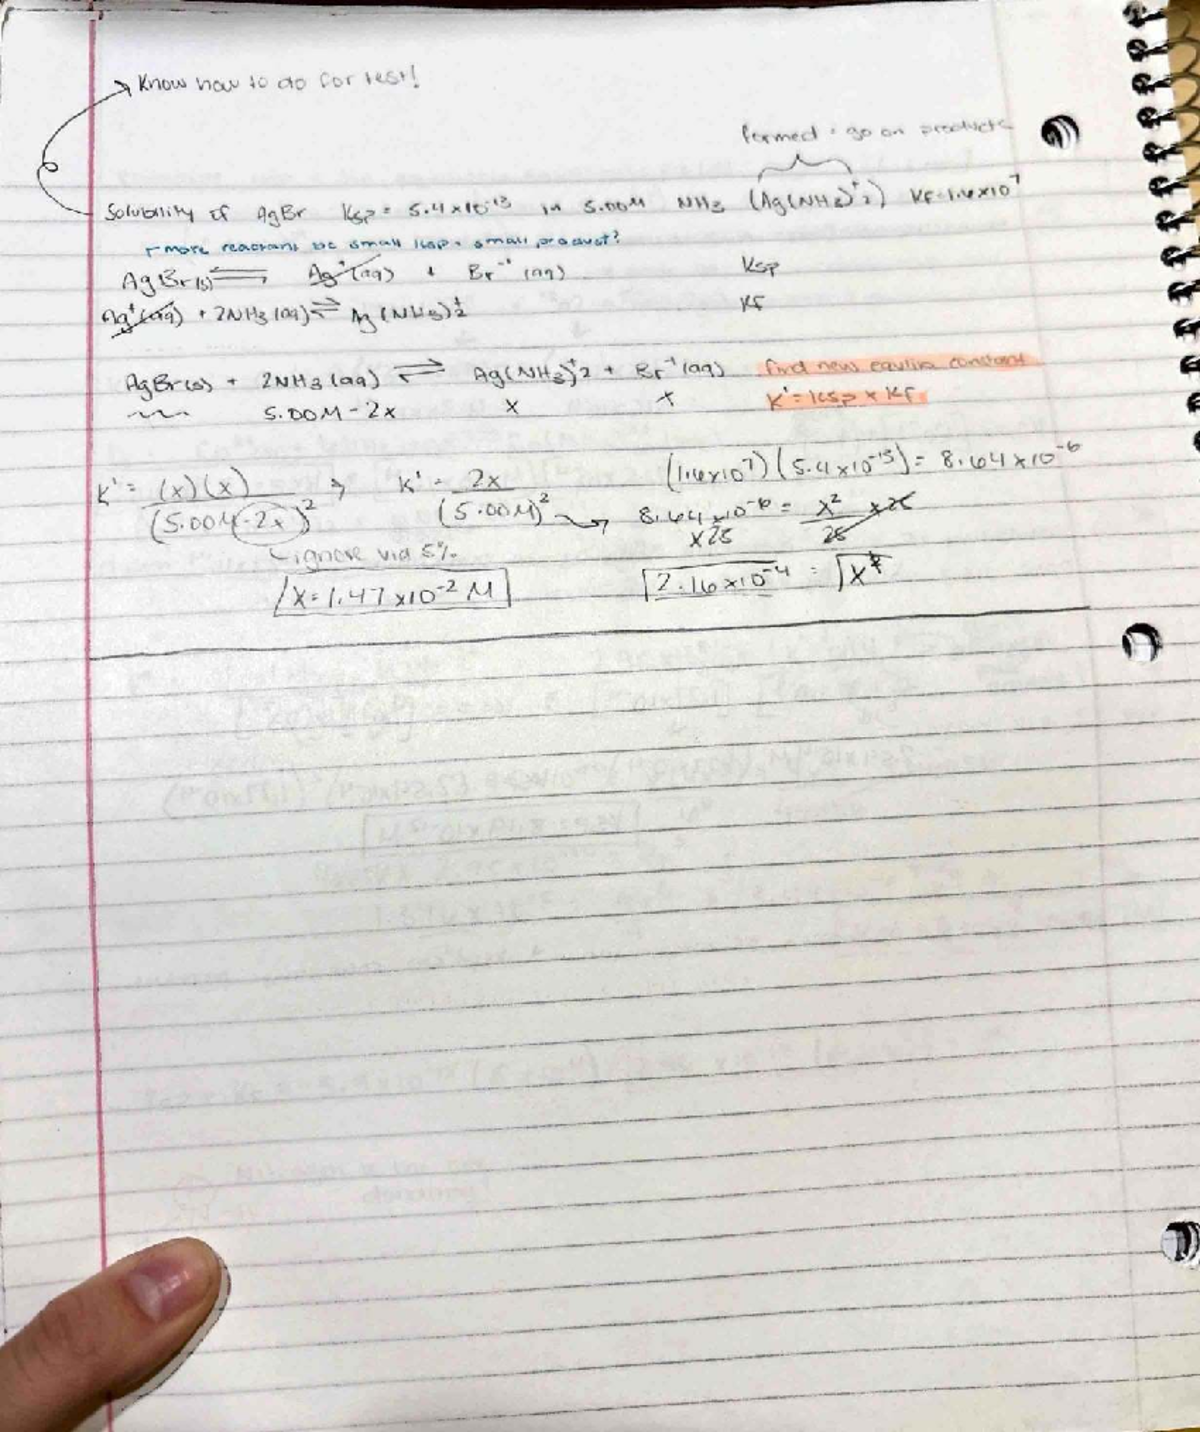 Know how to do for test!
formed = go on products
Solubility of AgBr Ksp = 5.4 x 10^-13 in 5.00M NH3 (Ag(NH3)^+2) Kf = 1.6 x 10^7
more reactant bc small ksp = small product?
AgBr(s) ⇌ Ag^+(aq) + Br^-1 (aq) Ksp
Ag^+(aq) + 2NH3(aq) ⇌ Ag(NH3)2^+ Kf
AgBr(s) + 2NH3(aq) ⇌ Ag(NH3)^+2 + Br^-1(aq) find new equlib constant
5.00M - 2x x x K' = Ksp x Kf
(1.6x10^7)(5.4x10^-13) = 8.64x10^-6
K' = (x)(x) / (5.00M - 2x)^2 → K' = 2x / (5.00M)^2 → 8.64 x 10^-6 = x^2 / 25 x 25
x25
ignore via 5%
x = 1.47 x 10^-2 M √2.16x10^-4 = √x^2